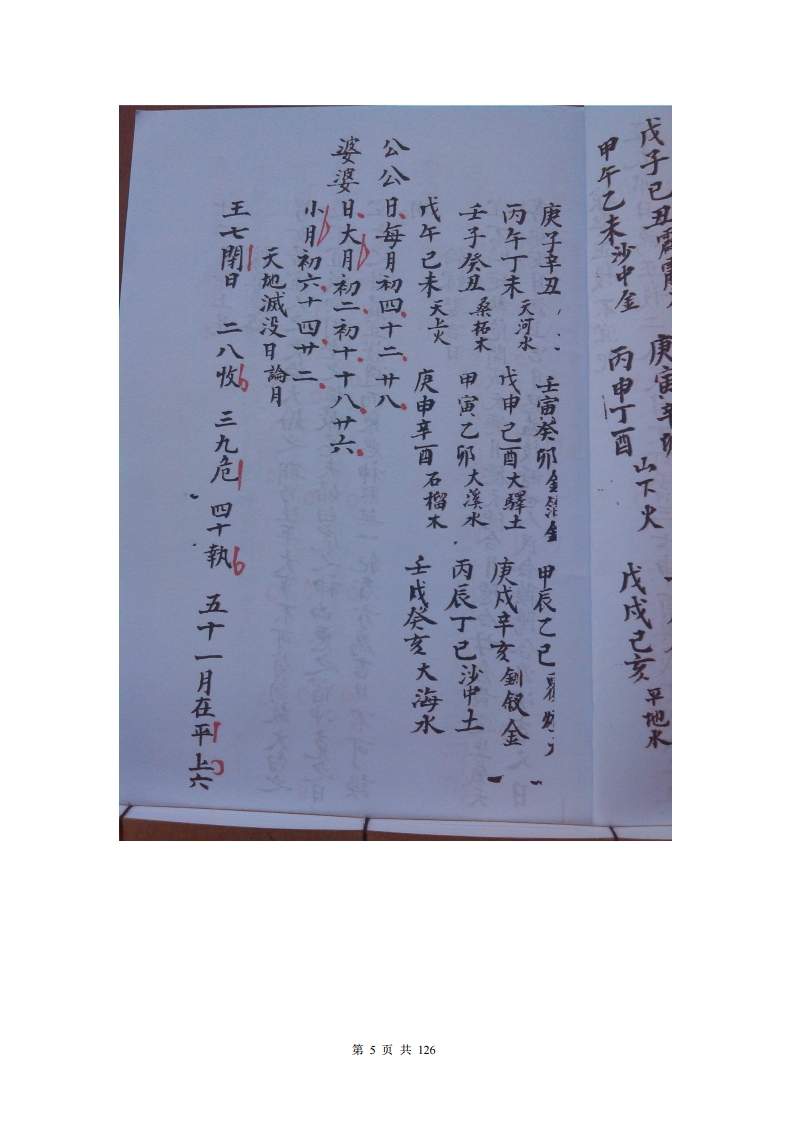 戊子己丑霹靂
庚寅辛
甲午乙未沙中金
丙申丁酉山下火
戊戌己亥平地木
庚子辛丑
壬寅癸卯金箔金
甲辰乙巳覆燈火
丙午丁未天河水
戊申己酉大驛土
庚戌辛亥釧釵金
壬子癸丑桑柘木
甲寅乙卯大溪水
丙辰丁巳沙中土
戊午己未天上火
庚申辛酉石榴木
壬戌癸亥大海水
公公日每月初四十二廿八
婆婆日大月初二初十十八廿六
小月初六十四廿二
天地滅没日論月
王七閉日 二八收 三九危 四十執 五十一月在平上六
第 5 页 共 126